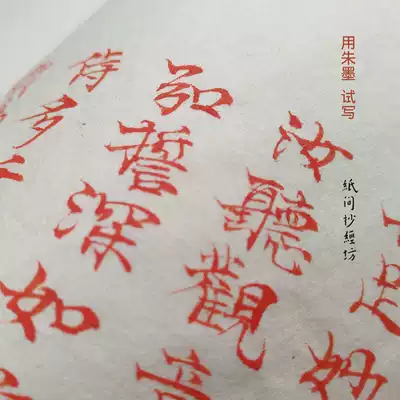 用朱墨 试写
紙间抄經坊
汝聽觀
弘誓深如
侍多